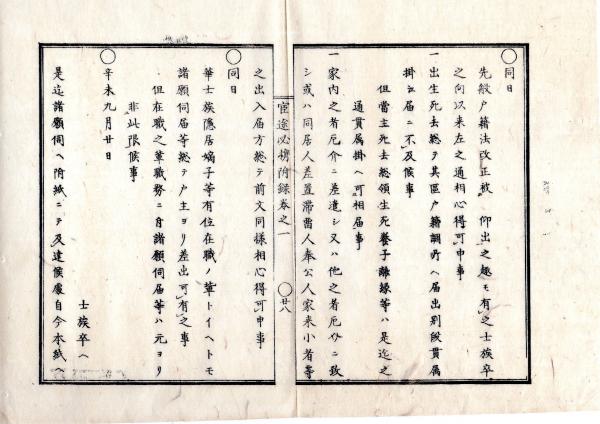 〇同日
先般戸籍法改正被 仰出之趣モ有之士族卒
之向以来左之通相心得可申事
一出生死去総テ其區戸籍調所ヘ届出別段貫属
掛ヘ届ニ不及候事
但當主死去総領生死養子離縁等ハ是迄之
通貫属掛ヘ可相届事
一家内之者厄介ニ差遣シ又ハ他之者厄介ニ致
シ或ハ同居人差置滞留人奉公人家来小者等
宦途必携附録巻之一
〇廿八
之出入届方総テ前文同様相心得可申事
〇同日
華士族隠居嫡子等有位在職ノ輩トイヘトモ
諸願伺届等総テ戸主ヨリ差出可有之事
但在職之輩職務ニ付諸願伺届等ハ元ヨリ
非此張候事
〇辛未九月廿日
士族卒ヘ
是迄諸願伺ヘ附紙ニテ及達候處自今本紙ヘ